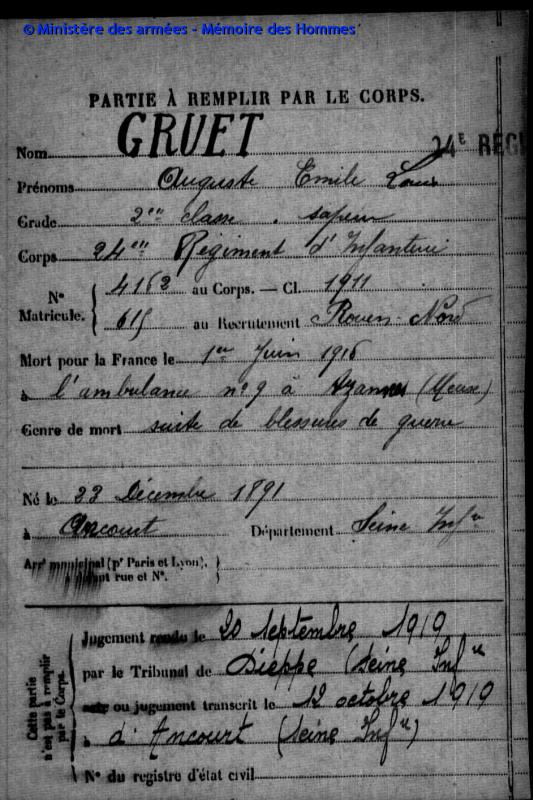 © Ministère des armées - Mémoire des Hommes
PARTIE À REMPLIR PAR LE CORPS.
Nom GRUET 24E REGI
Prénoms Auguste Emile Louis
Grade 2me classe . sapeur
Corps 24me Régiment d'Infanterie
N° Matricule. { 4162 au Corps. — Cl. 1911
615 au Recrutement Rouen-Nord
Mort pour la France le 1er Juin 1916
à l'ambulance n° 9 à Azannes (Meuse)
Genre de mort suite de blessures de guerre
Né le 23 Décembre 1891
à Ancourt Département Seine Infre
Arrt municipal (pr Paris et Lyon), }
à défaut rue et N°.
Cette partie n'est pas à remplir par le Corps.
Jugement rendu le 20 septembre 1919
par le Tribunal de Dieppe (Seine Infre
acte ou jugement transcrit le 12 octobre 1919
à d'Ancourt (Seine Infre)
N° du registre d'état civil